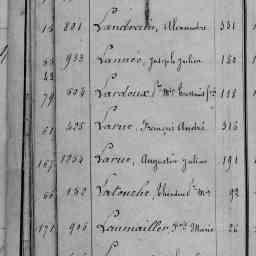 15 801 Landrein, Alexandre 331
933 Lannes, Joseph Julien 180
79 504 Lardoux
61 435 Larue, François André 316
167 1034 Larue, Augustin Julien 191
66 182 Latouche, 92
171 906 Laumailler, Marie 26